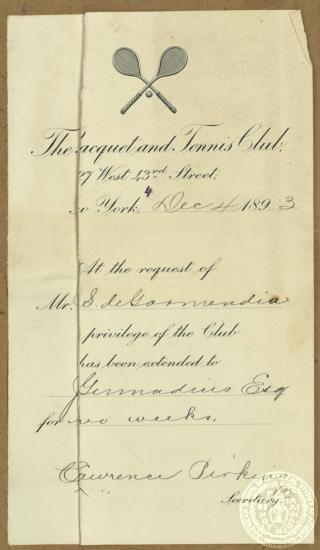 The Racquet and Tennis Club,
27 West 43rd Street,
New York, Dec 4 1893
At the request of
Mr. S de Garmendia
privilege of the Club
has been extended to
J Gennadius Esq
for two weeks.
Lawrence Perkins
Secretary